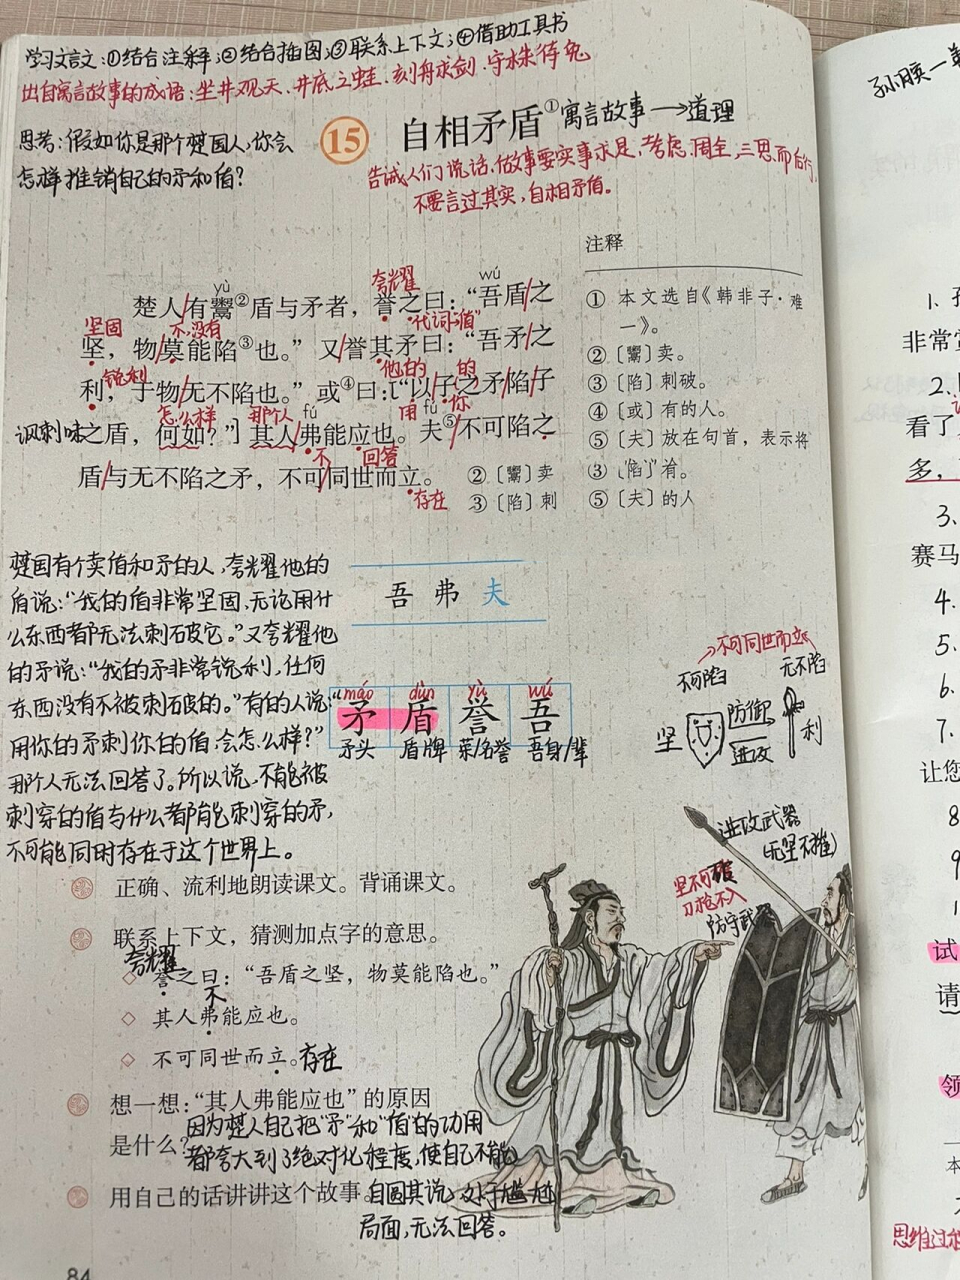 学习文言文:①结合注释;②结合插图;③联系上下文;④借助工具书
出自寓言故事的成语:坐井观天、井底之蛙、刻舟求剑、守株待兔
思考:假如你是那个楚国人,你会
怎样推销自己的矛和盾?
15 自相矛盾① 寓言故事→道理
告诫人们说话、做事要实事求是,考虑周全,三思而后行,
不要言过其实,自相矛盾。
注释
① 本文选自《韩非子·难
一》。
②〔鬻〕卖。
③〔陷〕刺破。
④〔或〕有的人。
⑤〔夫〕放在句首,表示将
夸耀
yù wú
楚人/有鬻②盾与矛者,誉之曰:“吾盾/之
坚固 不没有 代词“盾”
坚,物/莫能陷③也。”又/誉其矛曰:“吾矛/之
锐利 他的 的
利,于物/无不陷也。”或④曰:[“以/子之矛/陷/子
怎么样 那个人 fú 用 fú 你
讽刺味
之盾,何如?”]其人/弗能应也。夫⑤/不可陷之
不 回答
盾/与无不陷之矛,不可/同世而立。
存在
②〔鬻〕卖
③〔陷〕刺
⑤〔夫〕的人
楚国有个卖盾和矛的人,夸耀他的
盾说:“我的盾非常坚固,无论用什
么东西都无法刺破它。”又夸耀他
的矛说:“我的矛非常锐利,任何
东西没有不被刺破的。”有的人说:“
用你的矛刺你的盾,会怎么样?”
那个人无法回答了。所以说,不能被
刺穿的盾与什么都能刺穿的矛,
不可能同时存在于这个世界上。
吾 弗 夫
máo dùn yù wú
矛 盾 誉 吾
矛头 盾牌 荣/名誉 吾身/辈
不可同世而立
不可陷 无不陷
坚 防御 进攻 利
进攻武器
(无坚不摧)
坚不可摧
刀枪不入
防守武器
正确、流利地朗读课文。背诵课文。
联系上下文,猜测加点字的意思。
夸耀
◇ 誉之曰:“吾盾之坚,物莫能陷也。”
不
◇ 其人弗能应也。
◇ 不可同世而立。存在
想一想:“其人弗能应也”的原因
是什么?
因为楚人自己把“矛”和“盾”的功用
都夸大到了绝对化程度,使自己不能
用自己的话讲讲这个故事。
自圆其说,处于尴尬
局面,无法回答。
84
孙膑一
1.
非常
2.
看了
多,
3.
赛马
4.
5.
6.
7.
让您
8
9
1
试
请
领
本
思维过程